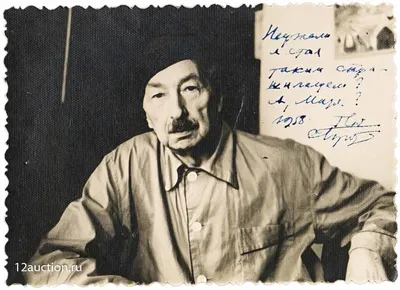 Неужели
я стал
таким стра-
шилищем?
А, Марк?
1958
12auction.ru